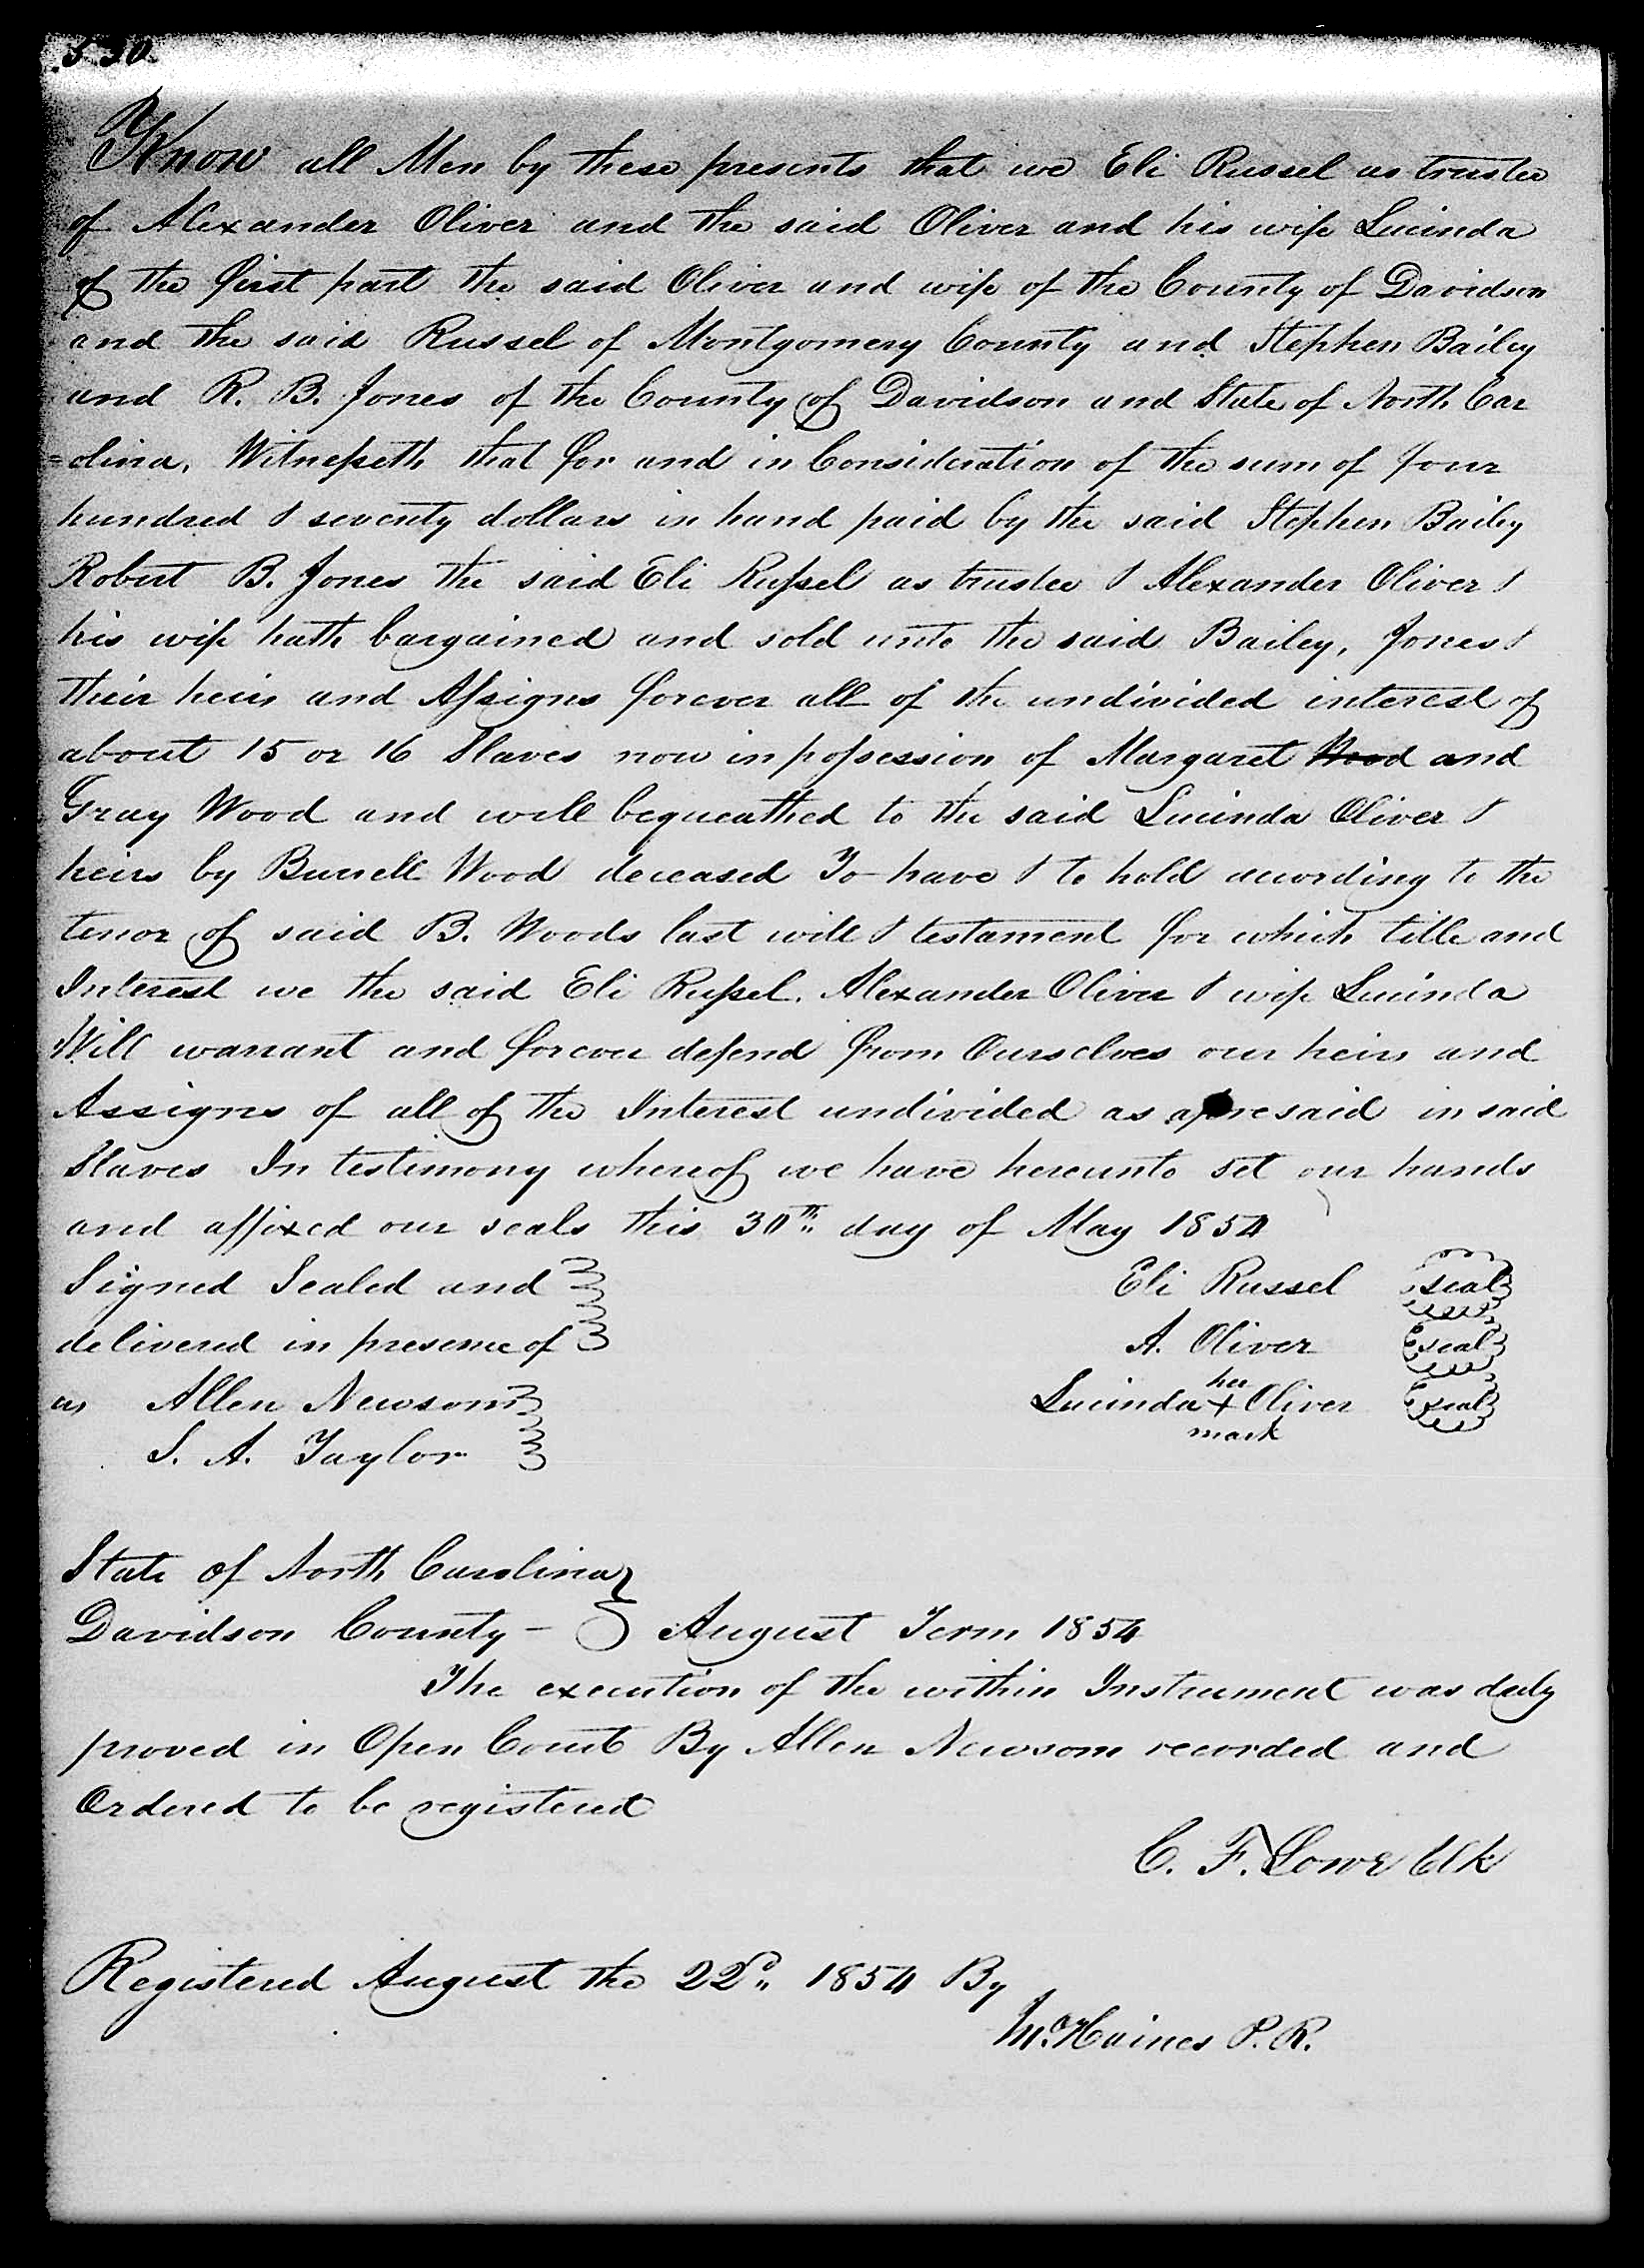 530
Know all Men by these presents that we Eli Russel as trustee
of Alexander Oliver and the said Oliver and his wife Lucinda
of the first part the said Oliver and wife of the County of Davidson
and the said Russel of Montgomery County and Stephen Bailey
and R. B. Jones of the County of Davidson and State of North Car
=olina, Witnesseth that for and in Consideration of the sum of four
hundred & seventy dollars in hand paid by the said Stephen Bailey
Robert B. Jones the said Eli Russel as trustee & Alexander Oliver &
his wife hath bargained and sold unto the said Bailey, Jones &
their heirs and Assigns forever all of the undivided interest of
about 15 or 16 Slaves now in possession of Margaret Wood and
Gray Wood and will bequeathed to the said Lucinda Oliver &
heirs by Burrell Wood deceased To have & to hold according to the
tenor of said B. Woods last will & testament for which title and
Interest we the said Eli Russel, Alexander Oliver & wife Lucinda
Will warrant and forever defend from Ourselves our heirs and
Assigns of all of the Interest undivided as aforesaid in said
Slaves In testimony whereof we have hereunto set our hands
and affixed our seals this 30th day of May 1854
Signed Sealed and Eli Russel seal
delivered in presence of A. Oliver seal
us Allen Newsom Lucinda her X mark Oliver seal
S. A. Taylor
State of North Carolina
Davidson County - August Term 1854
The execution of the within Instrument was duly
proved in Open Court By Allen Newsom recorded and
Ordered to be registered
C. F. Lowe Clk
Registered August the 22d 1854 By
M. Haines P. R.